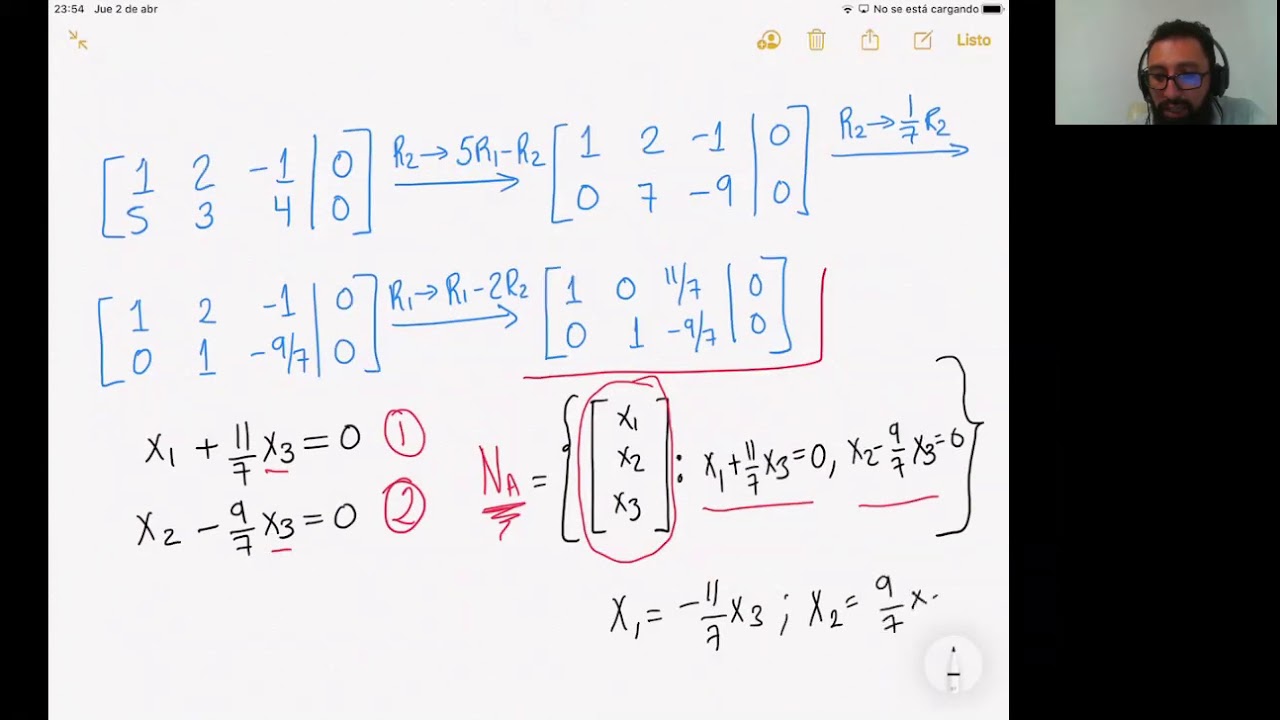 23:54 Jue 2 de abr
No se está cargando
Listo
[1 2 -1 | 0] R2→5R1-R2 [1 2 -1 | 0] R2→1/7R2
[5 3 4 | 0] [0 7 -9 | 0]
[1 2 -1 | 0] R1→R1-2R2 [1 0 11/7 | 0]
[0 1 -9/7 | 0] [0 1 -9/7 | 0]
x1 + 11/7 x3 = 0 ①
x2 - 9/7 x3 = 0 ②
NA = { [x1 x2 x3] : x1 + 11/7 x3 = 0, x2 - 9/7 x3 = 0 }
x1 = -11/7 x3 ; x2 = 9/7 x